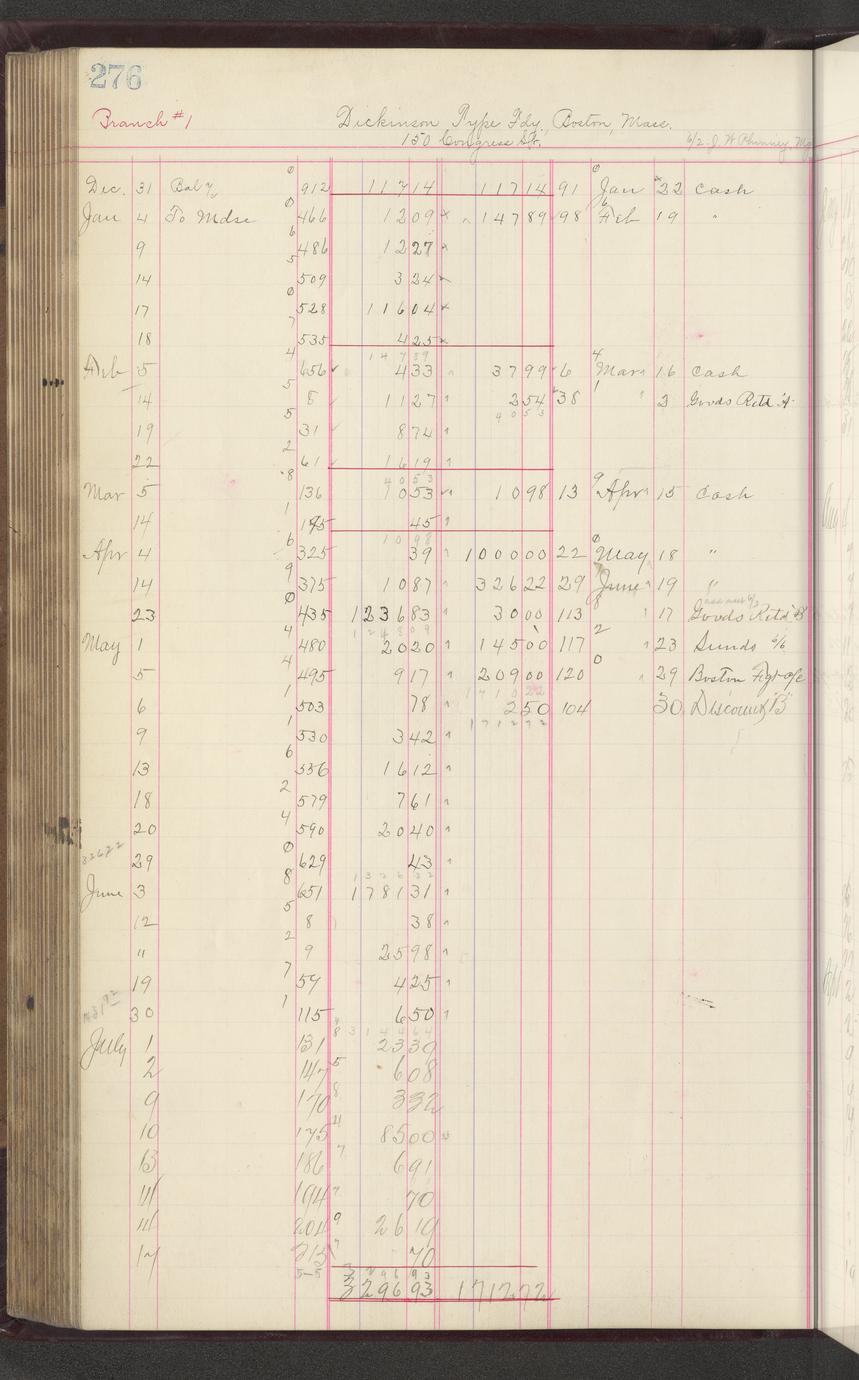 276
Branch #1 Dickinson Type Fdy, Boston, Mass.
150 Congress St. J. W. Phinney
Dec. 31 Bal 912 117 14 117 14 91 Jan 22 Cash
Jan 4 To Mdse 466 12 09 147 89 98 Feb 19 "
9 486 12 27
14 509 3 24
17 528 116 04
18 535 4 25
147 89
Feb 5 656 4 33 37 99 6 Mar 16 Cash
14 8 11 27 2 54 38 " 2 Goods Retd "A"
40 53
19 31 8 74
22 61 16 19
40 53
Mar 5 136 10 53 10 98 13 Apr 15 Cash
14 195 45
10 98
Apr 4 325 39 1000 00 22 May 18 "
14 375 10 87 326 22 29 June 19 "
23 435 1236 83 30 00 113 " 17 Goods Retd "B"
1248 09
May 1 480 20 20 145 00 117 " 23 Sunds 6/6
5 495 9 17 209 00 120 " 29 Boston
1710 22
6 503 78 2 50 104 30 Discount "B"
1712 72
9 530 3 42
13 556 16 12
18 579 7 61
20 590 20 40
326 22
29 629 43
1326 22
June 3 651 1781 31
12 8 38
" 9 25 98
19 54 4 25
30 115 6 50
3144 64
July 1 131 23 39
2 147 6 08
9 170 3 32
10 175 85 00
13 186 6 91
14 194 70
14 204 26 19
17 215 70
3296 93
3296 93 1712 72